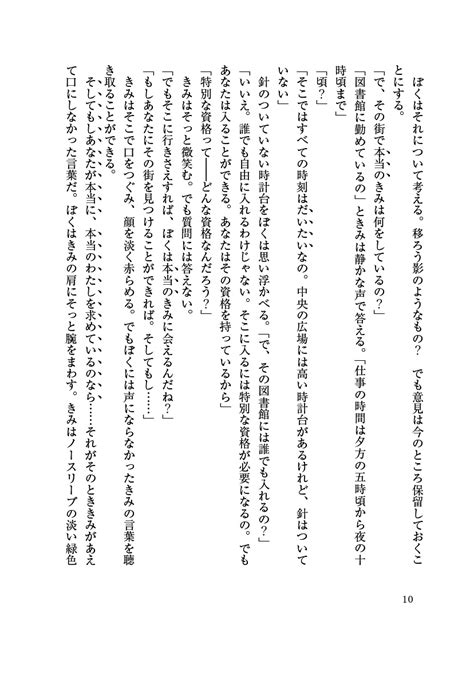 ぼくはそれについて考える。移ろう影のようなもの？　でも意見は今のところ保留しておくこ
とにする。
「で、その街で本当のきみは何をしているの？」
「図書館に勤めているの」ときみは静かな声で答える。「仕事の時間は夕方の五時頃から夜の十
時頃まで」
「頃？」
「そこではすべての時刻はだいたいなの。中央の広場には高い時計台があるけれど、針はついて
いない」
針のついていない時計台をぼくは思い浮かべる。「で、その図書館には誰でも入れるの？」
「いいえ。誰でも自由に入れるわけじゃない。そこに入るには特別な資格が必要になるの。でも
あなたは入ることができる。あなたはその資格を持っているから」
「特別な資格って――どんな資格なんだろう？」
きみはそっと微笑む。でも質問には答えない。
「でもそこに行きさえすれば、ぼくは本当のきみに会えるんだね？」
「もしあなたにその街を見つけることができれば。そしてもし……」
きみはそこで口をつぐみ、顔を淡く赤らめる。でもぼくには声にならなかったきみの言葉を聴
き取ることができる。
そしてもしあなたが本当に、本当のわたしを求めているのなら……それがそのとききみがあえ
て口にしなかった言葉だ。ぼくはきみの肩にそっと腕をまわす。きみはノースリーブの淡い緑色
10